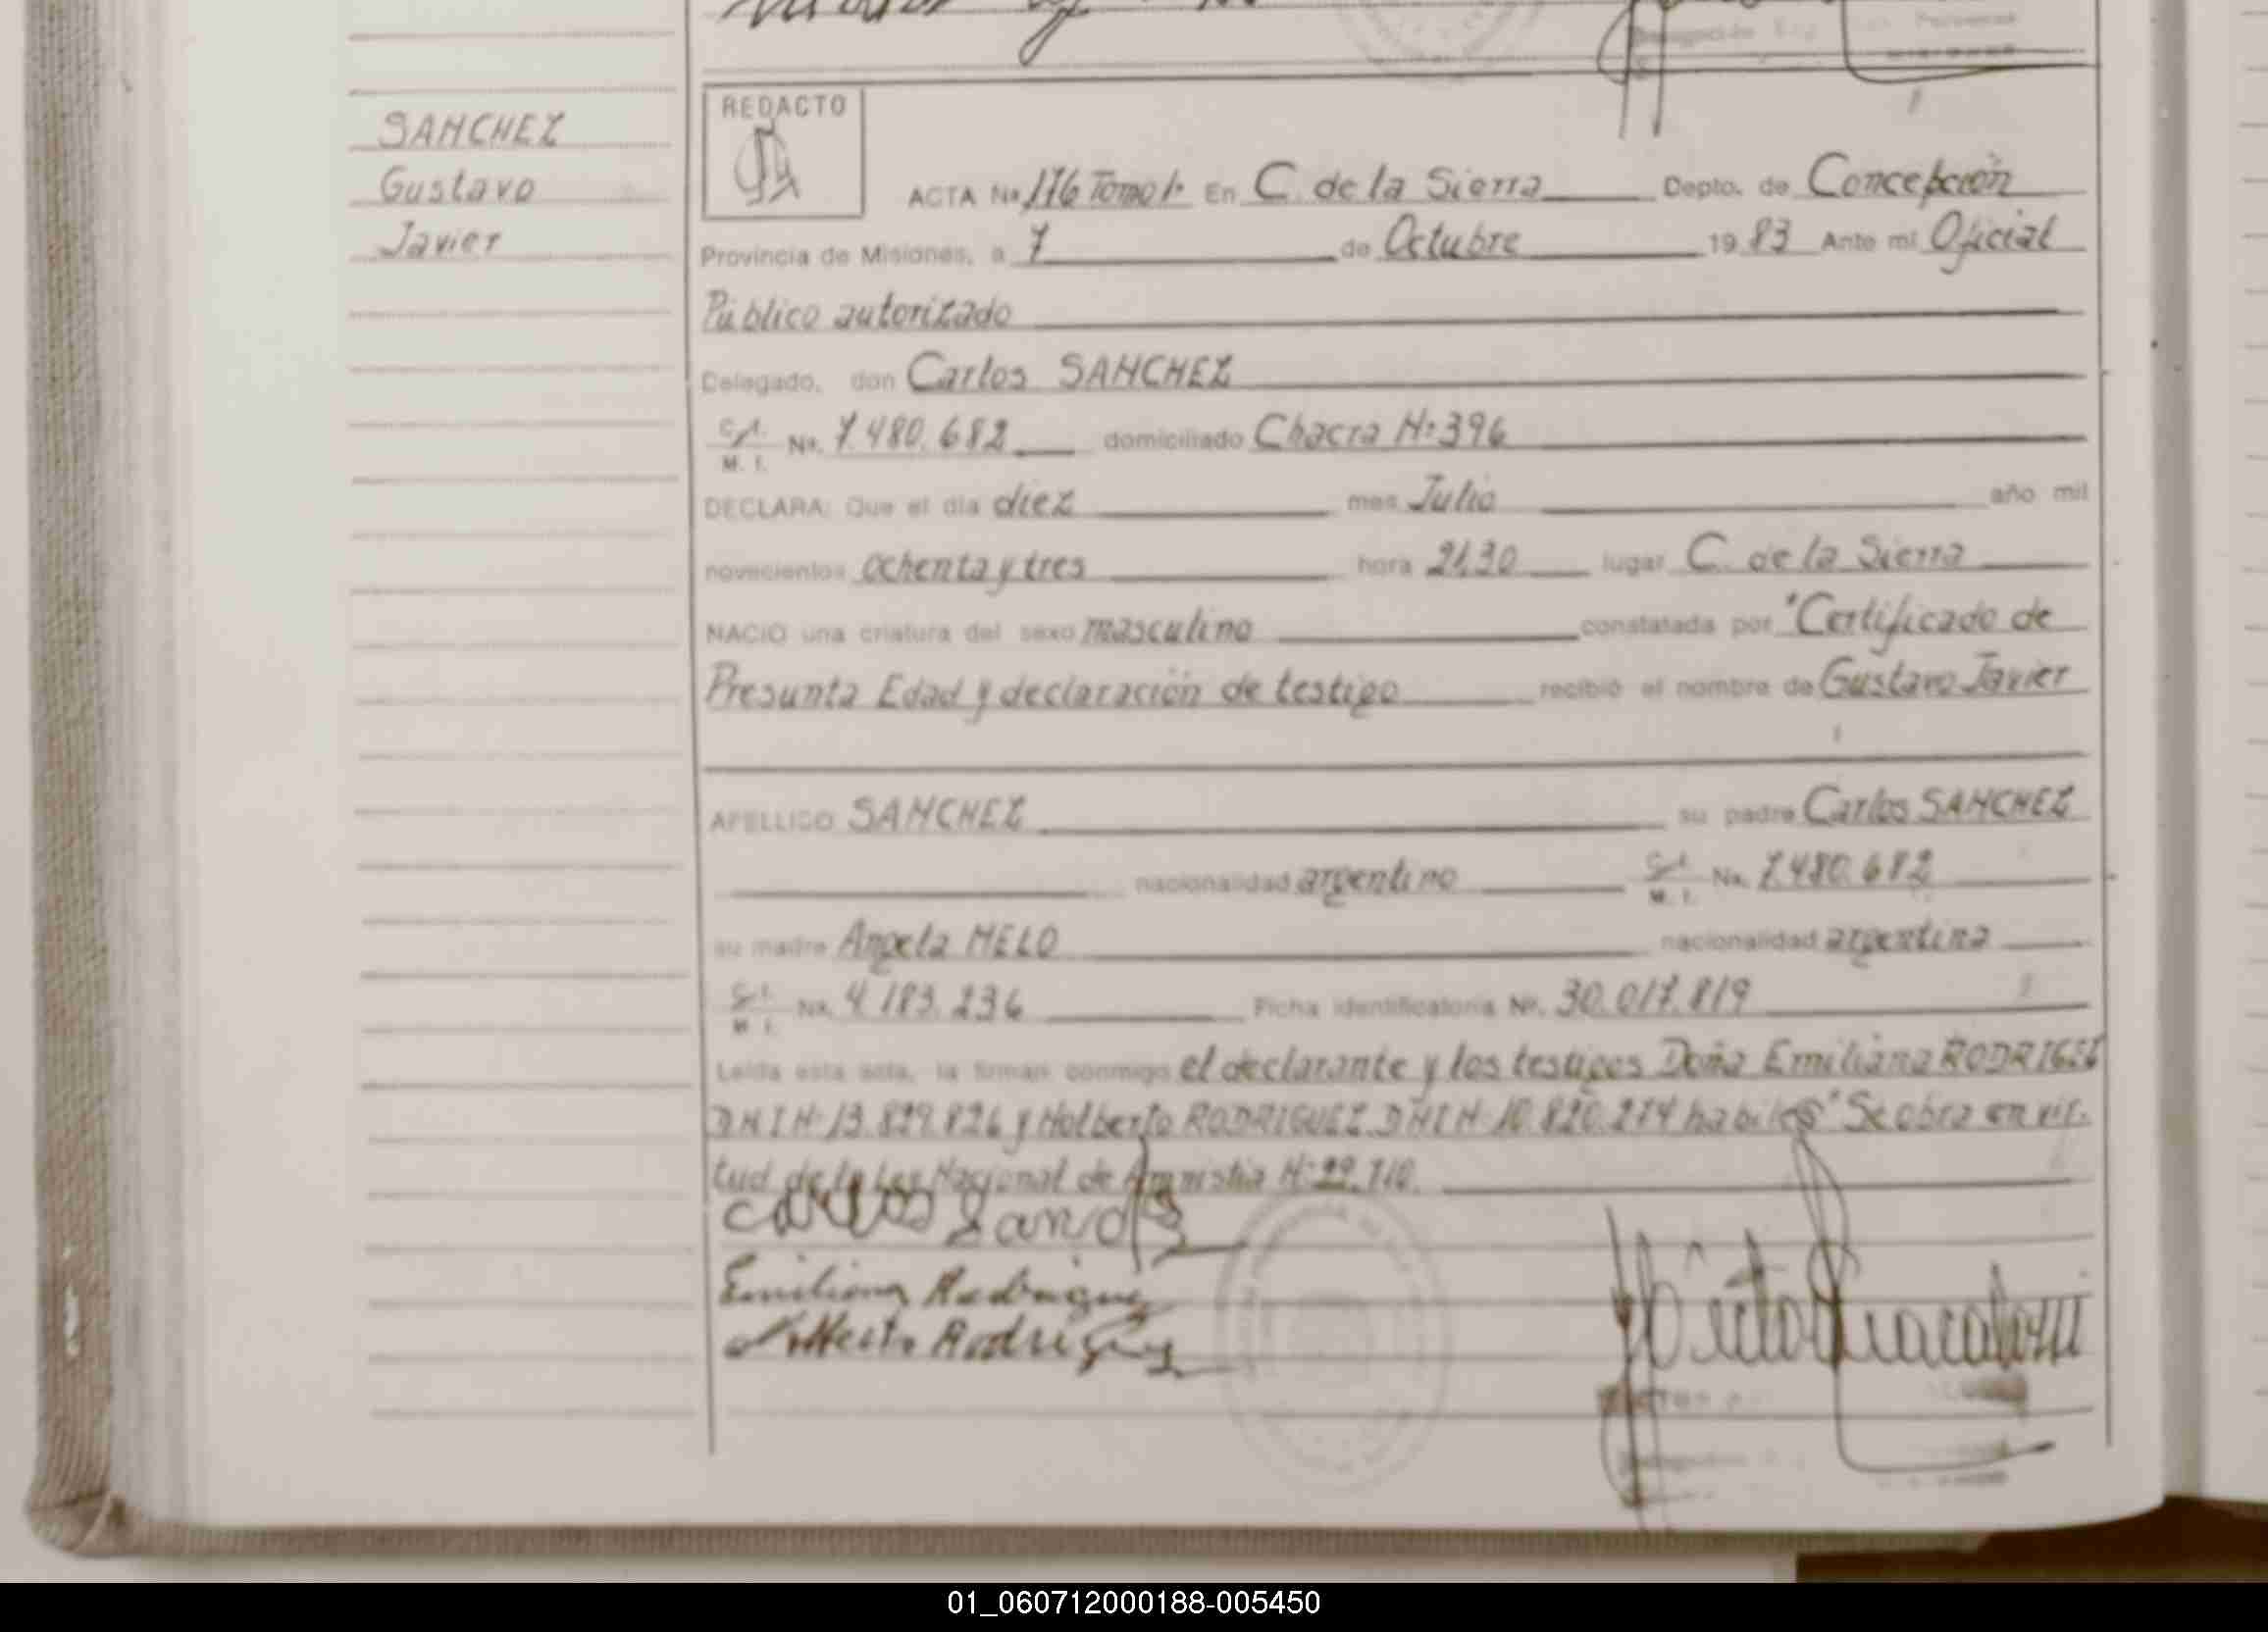 SANCHEZ
Gustavo
Javier
REDACTO
ACTA Nº 176 Tomo 1º En C. de la Sierra Depto. de Concepción
Provincia de Misiones, a 7 de Octubre 1983 Ante mi Oficial
Público autorizado
Delegado, don Carlos SANCHEZ
C.I. M. I. Nº. 7.480.682 domiciliado Chacra Nº 396
DECLARA: Que el día diez mes Julio año mil
novecientos ochenta y tres hora 21,30 lugar C. de la Sierra
NACIO una criatura del sexo masculino constatada por "Certificado de
Presunta Edad y declaración de testigo recibió el nombre de Gustavo Javier
APELLIDO SANCHEZ su padre Carlos SANCHEZ
nacionalidad argentino C.I. M. I. Nº. 7.480.682
su madre Angela MELO nacionalidad argentina
C.I. M. I. Nº. 4.183.236 Ficha identificatoria Nº. 30.017.819
Leída esta acta, la firman conmigo el declarante y los testigos Doña Emiliana RODRIGEZ
DNI Nº 13.829.826 y Nolberto RODRIGUEZ DNI Nº 10.820.274 habiles" Se obra en vir-
tud de la Ley Nacional de Amnistia Nº 22.710.
Carlos
Emiliana Rodriguez
Nolberto Rodriguez
01_060712000188-005450